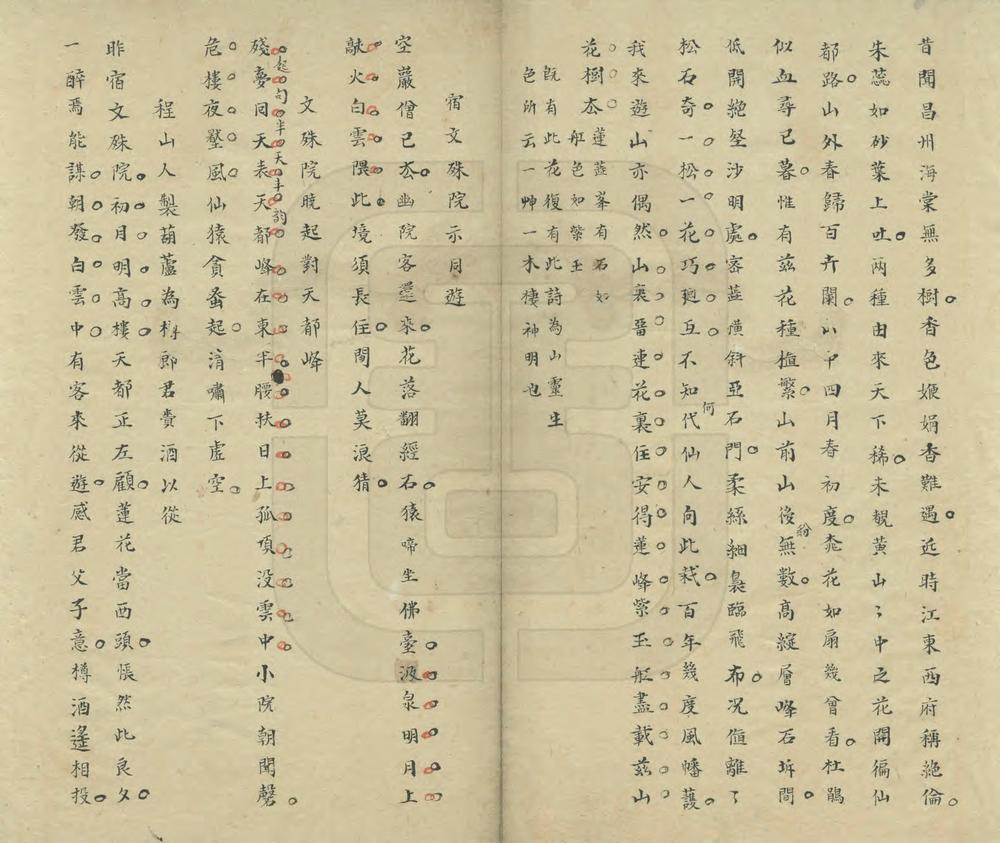 昔聞昌州海棠無多樹香色嬽娟香難遇近時江東西府稱絕倫
朱蕊如砂葉上吐兩種由來天下稀未覩黃山〻中之花開徧仙
都路山外春歸百卉闌山中四月春初度桃花如扇幾曾看杜鵑
似血尋已暮惟有茲花種植繁山前山後紛無數高綻層峰石坼間
低開絕壑沙明處密蕊橫斜亞石門柔絲細裊臨飛布況值離〻
松石奇一松一花巧迴互不知何代仙人向此栽百年幾度風幡護
我來遊山亦偶然山裏晉連花裏住安得蓮峰紫玉舡盡載茲山
花樹去蓮蕊峯有石如舡色如紫玉
既有此花復有此詩為山靈生
色所云一艸一木棲神明也
宿文殊院示同遊
空巖僧已去幽院客還來花落翻經石猿啼坐佛臺汲泉明月上
敲火白雲隈此境須長住閒人莫浪猜
文殊院曉起對天都峰
殘夢同天表天都峰在東半腰扶日上孤頂沒雲中小院朝聞磬
起句半天丰韵
危樓夜壑風仙猿貪蚤起清嘯下虛空
程山人製葫蘆為樽郎君賫酒以從
昨宿文殊院初月明高樓天都正左顧蓮花當西頭悵然此良夕
一醉焉能謀朝發白雲中有客來從遊感君父子意樽酒遙相投